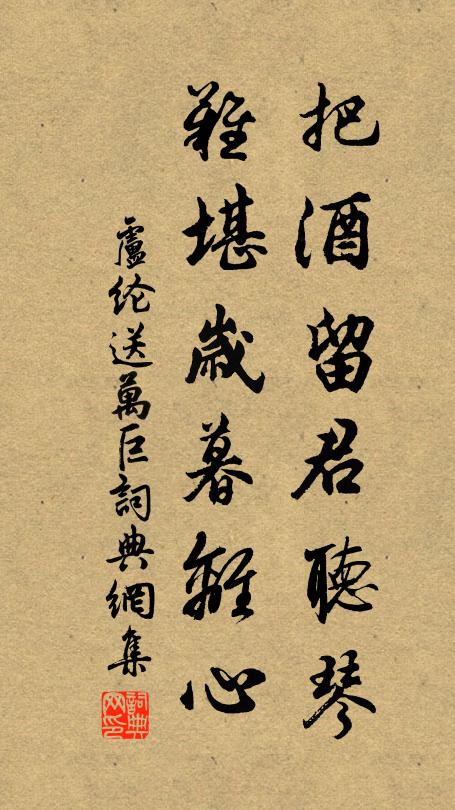 把酒留君聽琴
難堪歲暮離心
盧纶送萬巨詞典網集
詞典網印